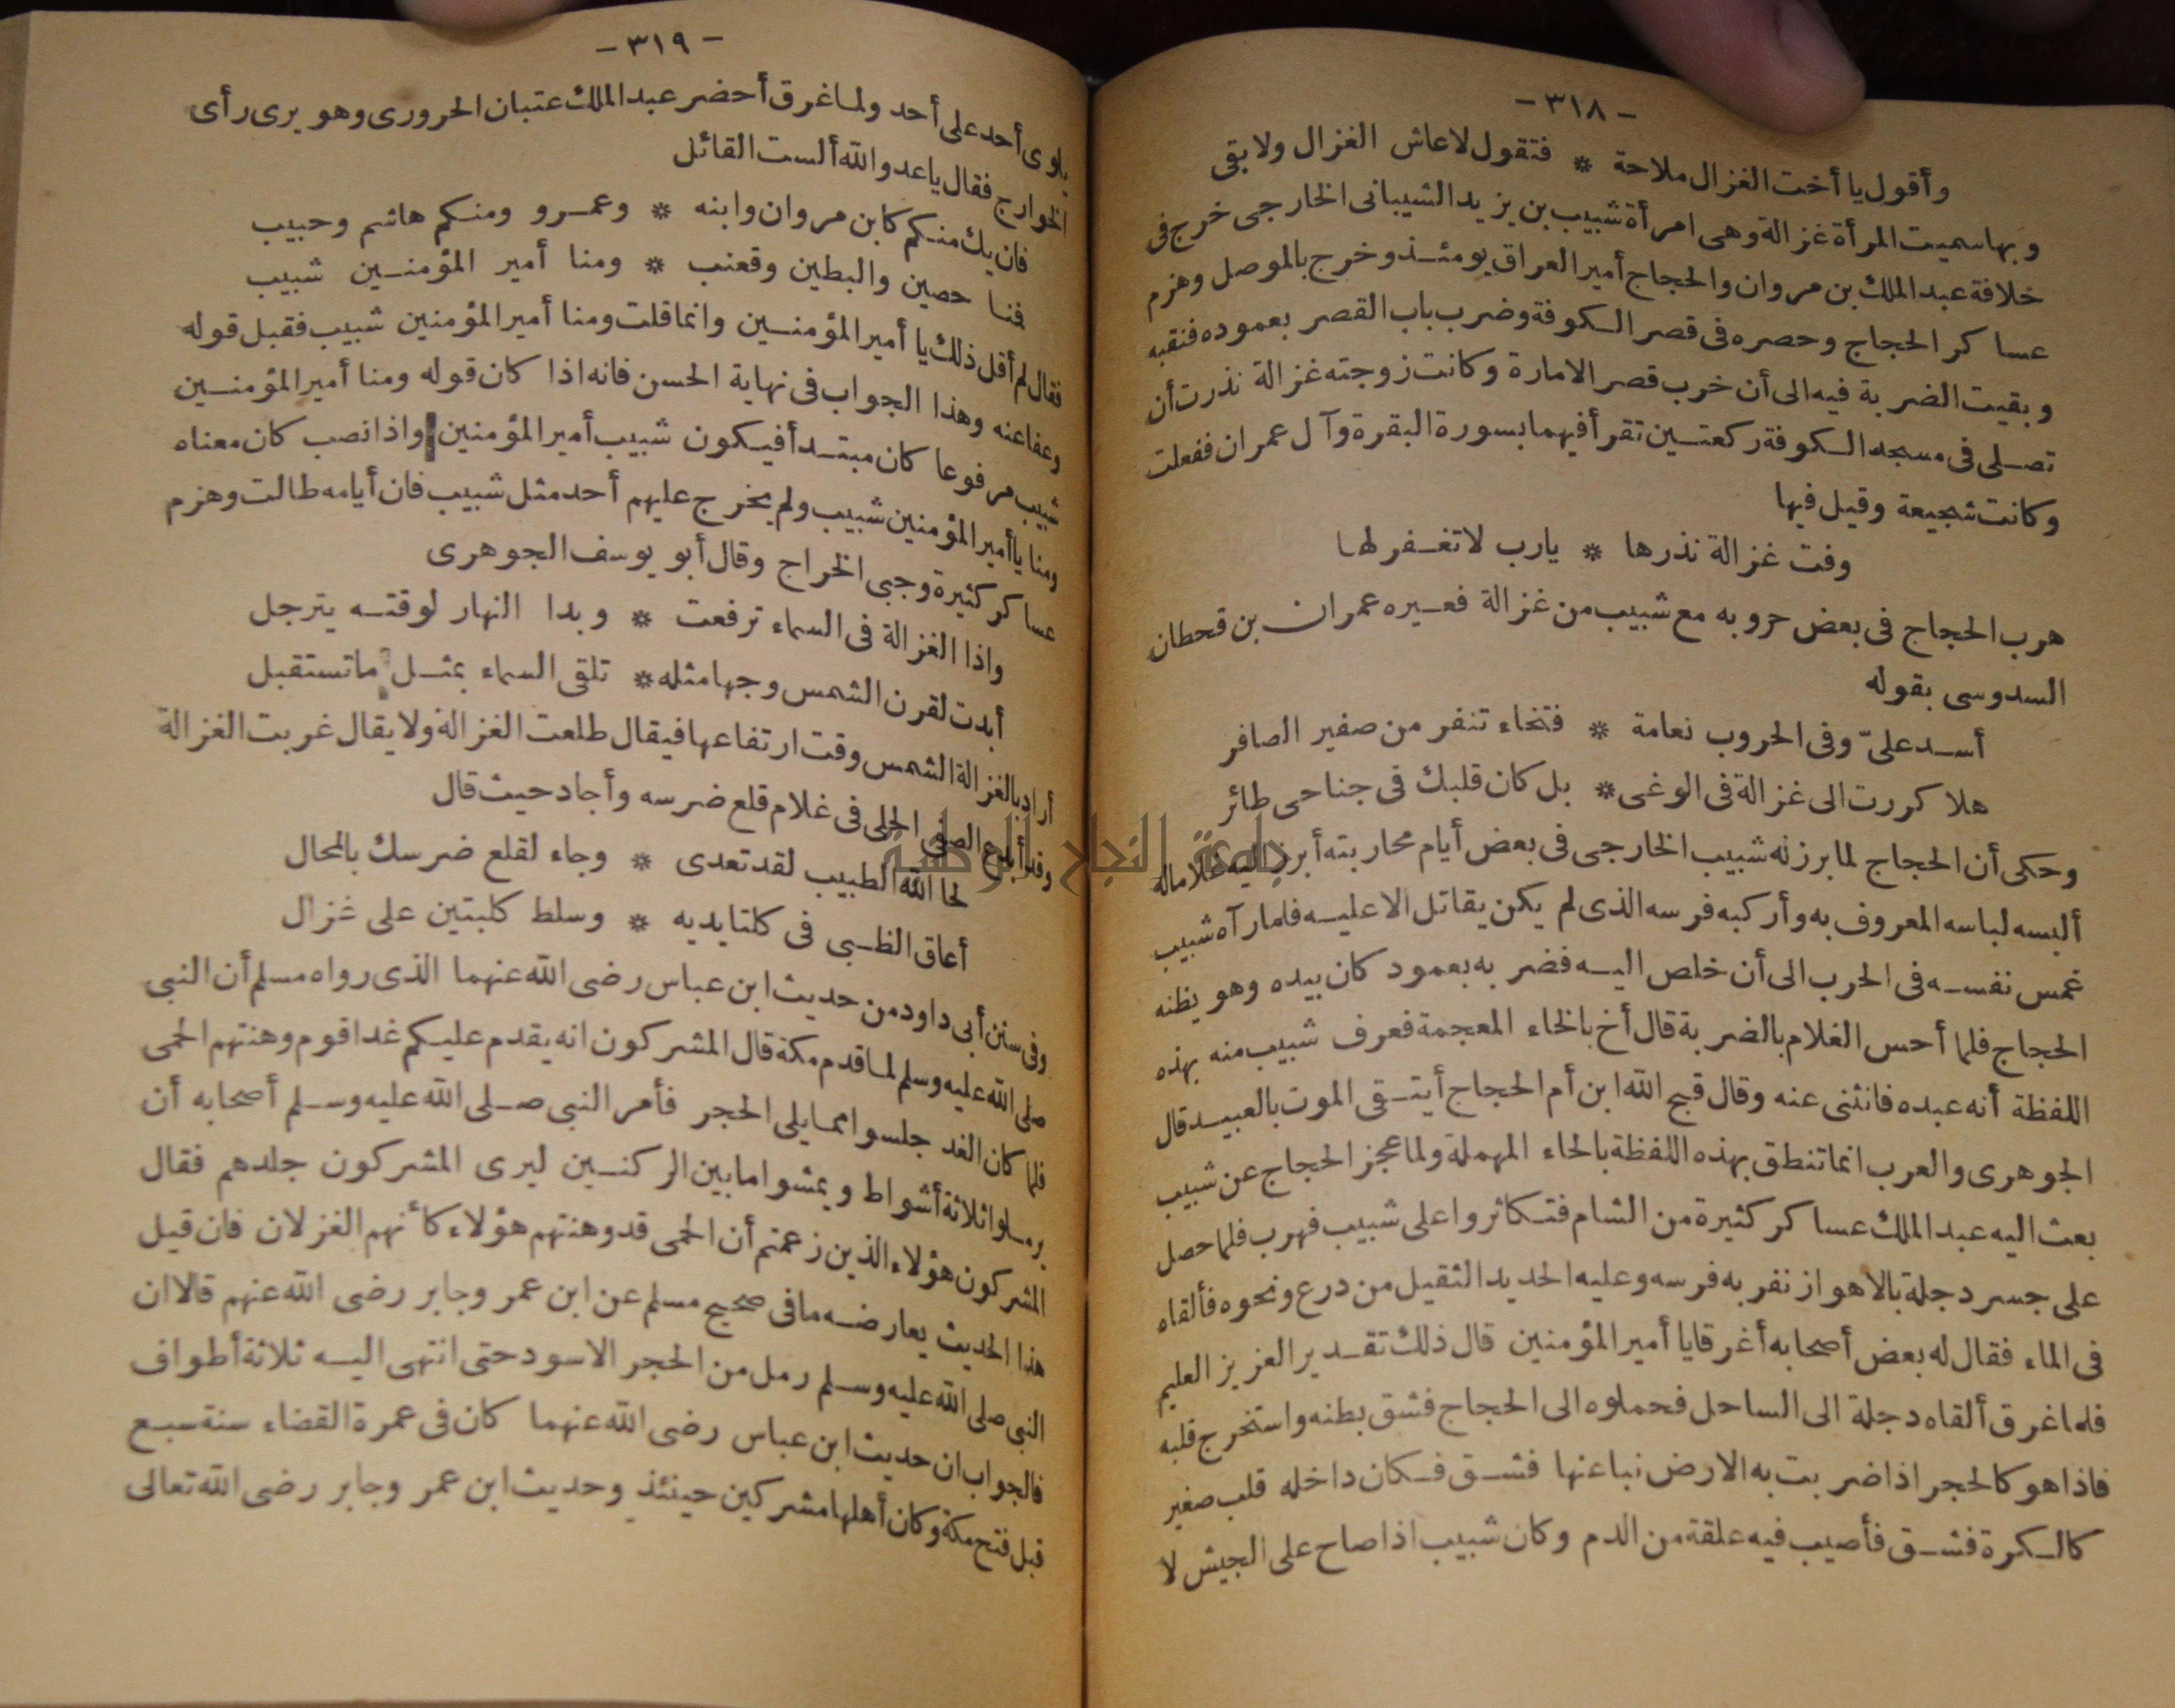 - ٣١٨ -
وأقول يا أخت الغزال ملاحة * فتقول لا عاش الغزال ولا بقى
وبها سميت المرأة غزالة وهى امرأة شبيب بن يزيد الشيبانى الخارجى خرج فى
خلافة عبد الملك بن مروان والحجاج أمير العراق يومئذ وخرج بالموصل وهزم
عساكر الحجاج وحصره فى قصر الكوفة وضرب باب القصر بعموده فنقبه
وبقيت الضربة فيه الى أن خرب قصر الامارة وكانت زوجته غزالة نذرت أن
تصلى فى مسجد الكوفة ركعتين تقرأ فيهما بسورة البقرة وآل عمران ففعلت
وكانت شجيعة وقيل فيها
وفت غزالة نذرها * يارب لا تغفر لها
هرب الحجاج فى بعض حروبه مع شبيب من غزالة فعيره عمران بن قحطان
السدوسى بقوله
أسد علىّ وفى الحروب نعامة * فتخاء تنفر من صفير الصافر
هلا كررت الى غزالة فى الوغى * بل كان قلبك فى جناحى طائر
وحكى أن الحجاج لما برز له شبيب الخارجى فى بعض أيام محاربته أبرز اليه غلاما له
ألبسه لباسه المعروف به وأركبه فرسه الذى لم يكن يقاتل الا عليه فلما رآه شبيب
غمس نفسه فى الحرب الى أن خلص اليه فضربه بعمود كان بيده وهو يظنه
الحجاج فلما أحس الغلام بالضربة قال أخ بالخاء المعجمة فعرف شبيب منه بهذه
اللفظة أنه عبده فانثنى عنه وقال قبح الله ابن أم الحجاج أيتقى الموت بالعبيد قال
الجوهرى والعرب انما تنطق بهذه اللفظة بالحاء المهملة ولما عجز الحجاج عن شبيب
بعث اليه عبد الملك عساكر كثيرة من الشام فتكاثروا على شبيب فهرب فلما حصل
على جسر دجلة بالاهواز نفر به فرسه وعليه الحديد الثقيل من درع ونحوه فألقاه
فى الماء فقال له بعض أصحابه أغرقا يا أمير المؤمنين قال ذلك تقدير العزيز العليم
فلما غرق ألقاه دجلة الى الساحل فحملوه الى الحجاج فشق بطنه واستخرج قلبه
فاذا هو كالحجر اذا ضربت به الارض نبا عنها فشق فكان داخله قلب صغير
كالكرة فشق فأصيب فيه علقة من الدم وكان شبيب اذا صاح على الجيش لا
- ٣١٩ -
يلوى أحد على أحد ولما غرق أحضر عبد الملك عتبان الحرورى وهو يرى رأى
الخوارج فقال يا عدو الله ألست القائل
فان يك منكم كابن مروان وابنه * وعمرو ومنكم هاشم وحبيب
فمنا حصين والبطين وقعنب * ومنا أمير المؤمنين شبيب
فقال لم أقل ذلك يا أمير المؤمنين وانما قلت ومنا أمير المؤمنين شبيب فقبل قوله
وعفا عنه وهذا الجواب فى نهاية الحسن فانه اذا كان قوله ومنا أمير المؤمنين
شبيب مرفوعا كان مبتدأ فيكون شبيب أمير المؤمنين واذا نصب كان معناه
ومنا يا أمير المؤمنين شبيب ولم يخرج عليهم أحد مثل شبيب فان أيامه طالت وهزم
عساكر كثيرة وجبى الخراج وقال أبو يوسف الجوهرى
واذا الغزالة فى السماء ترفعت * وبدا النهار لوقته يترجل
أبدت لقرن الشمس وجها مثله * تلقى السماء بمثل ما تستقبل
أراد بالغزالة الشمس وقت ارتفاعها فيقال طلعت الغزالة ولا يقال غربت الغزالة
وقد أبدع الصفى الحلى فى غلام قلع ضرسه وأجاد حيث قال
لحا الله الطبيب لقد تعدى * وجاء لقلع ضرسك بالمحال
أعاق الظبى فى كلتا يديه * وسلط كلبتين على غزال
وفى سنن أبى داود من حديث ابن عباس رضى الله عنهما الذى رواه مسلم أن النبى
صلى الله عليه وسلم لما قدم مكة قال المشركون انه يقدم عليكم غدا قوم وهنتهم الحمى
فلما كان الغد جلسوا مما يلى الحجر فأمر النبى صلى الله عليه وسلم أصحابه أن
يرملوا ثلاثة أشواط ويمشوا ما بين الركنين ليرى المشركون جلدهم فقال
المشركون هؤلاء الذين زعمتم أن الحمى قد وهنتهم هؤلاء كأنهم الغزلان فان قيل
هذا الحديث يعارضه ما فى صحيح مسلم عن ابن عمر وجابر رضى الله عنهم قالا ان
النبى صلى الله عليه وسلم رمل من الحجر الاسود حتى انتهى اليه ثلاثة أطواف
فالجواب ان حديث ابن عباس رضى الله عنهما كان فى عمرة القضاء سنة سبع
قبل فتح مكة وكان أهلها مشركين حينئذ وحديث ابن عمر وجابر رضى الله تعالى
جامعة النجاح الوطنية